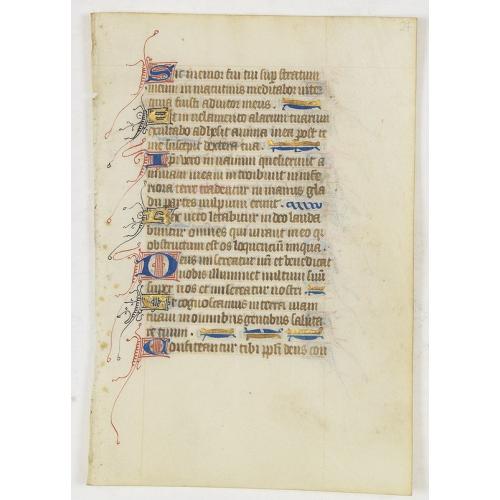 Sic memor fui tui sup stratum
meum in matutinis meditabor in te
quia fuisti adiutor meus.
Et in velamento alarum tuarum
exultabo adhesit anima mea post te
me suscepit dextera tua.
Ipsi vero in vanum quesierunt a
nimam meam introibunt in infe
riora terre tradentur in manus gla
dii partes vulpium erunt.
Rex vero letabitur in deo lauda
buntur omnes qui iurant in eo q
obstructum est os loquencium iniqua.
Deus misereatur nri et benedicat
nobis illuminet vultum suu
super nos et misereatur nostri.
Ut cognoscamus in terra viam
tuam in omnibus gentibus saluta
re tuum.
Confiteantur tibi ppli deus con